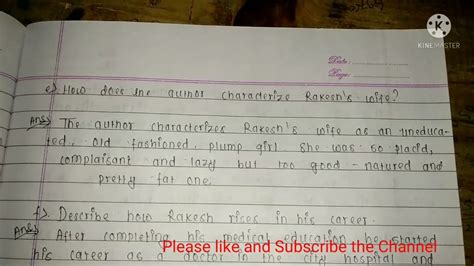 KINEMASTER
Date: ....................
Page: ....................
e). How does the author characterize Rakesh's wife?
Ans) The author characterizes Rakesh's wife as an uneduca-
ted, old fashioned, plump girl. She was so placid,
complaisant and lazy but too good-natured and
pretty fat one.
f). Describe how Rakesh rises in his career.
Ans) After completing his medical education he started
his career as a doctor in the city hospital and
Please like and Subscribe the Channel